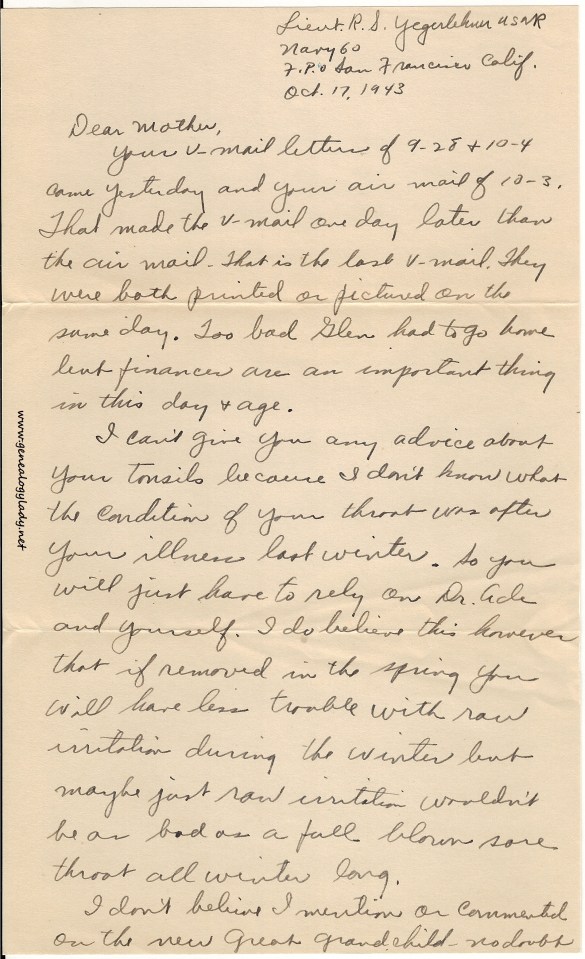 Lieut. R. S. Yegerlehner USNR
Navy 60
F.P.O San Francisco Calif.
Oct. 17, 1943
Dear Mother,
Your V-mail letters of 9-28 + 10-4
came yesterday and your air mail of 10-3.
That made the V-mail one day later than
the air mail - That is the last V-mail. They
were both printed or pictured on the
same day. Too bad Glen had to go home
but finances are an important thing
in this day & age.
I can't give you any advice about
your tonsils because I don't know what
the condition of your throat was after
your illness last winter. So you
will just have to rely on Dr. Ade
and yourself. I do believe this however
that if removed in the spring you
will have less trouble with raw
irritation during the winter but
maybe just raw irritation wouldn't
be as bad as a full blown sore
throat all winter long.
I don't believe I mention or commented
on the new Great grandchild - no doubt
www.genealogylady.net